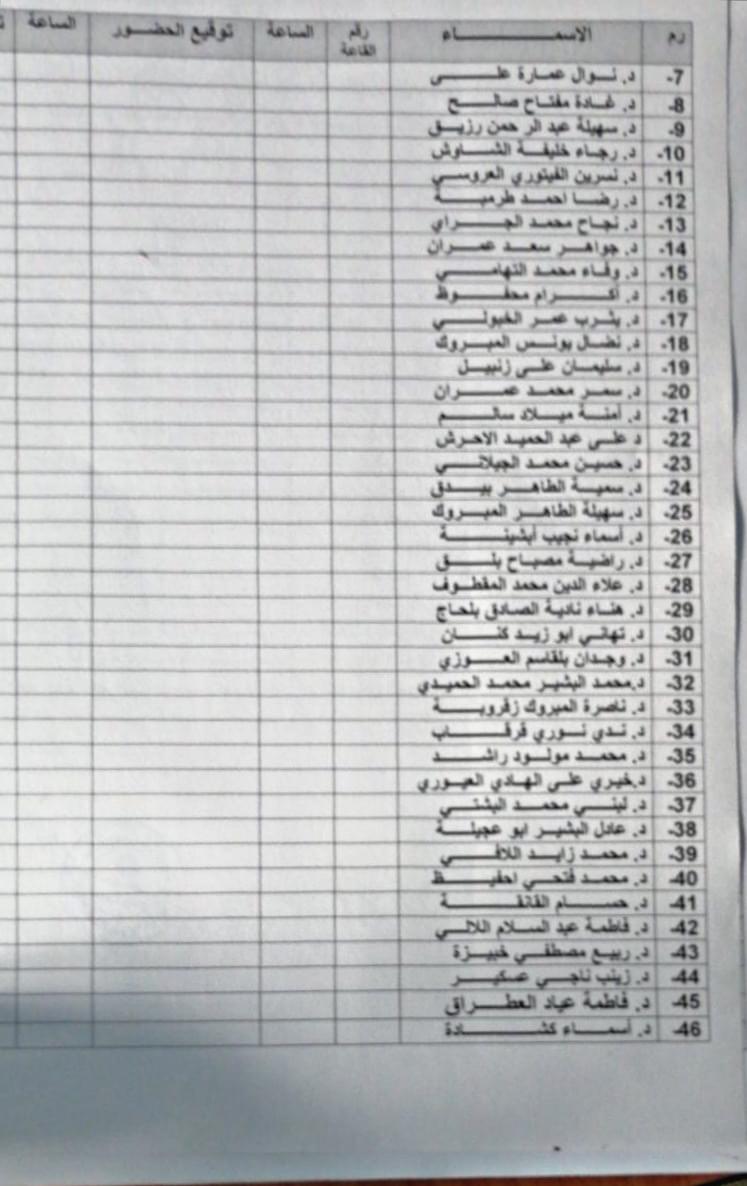 ر.م الاسمـــــــــاء رقم القاعة الساعة توقيع الحضــور الساعة
7- د. نــوال عمارة علــــى
8- د. غادة مفتاح صالـــح
9- د. سهيلة عبد الرحمن رزيــق
10- د. رجاء خليفــة الشــاوش
11- د. نسرين الفيتوري العروسي
12- د. رضــا احمــد طرميــة
13- د. نجاح محمد الجــــراي
14- د. جواهــر سعــد عمــران
15- د. وفــاء محمــد التهامــي
16- د. أكـــــرام محفـــوظ
17- د. يثــرب عمــر
18- د. نضــال يونــس المبــروك
19- د. سليمــان علــى زنبيــل
20- د. سمــر محمــد عمـــران
21- د. أمنــة ميــلاد سالـــم
22- د علــى عبد الحميــد الاحرش
23- د. حسيــن محمــد الجيلانــي
24- د. سميــة الطاهــر بيــدق
25- د. سهيلة الطاهــر المبــروك
26- د. أسماء نجيب أبشينـــــة
27- د. راضيــة مصبــاح بلـــق
28- د. علاء الدين محمد المقطــوف
29- د. هنــاء ناديــة الصــادق بلحاج
30- د. تهانــي ابو زيــد كنــــان
31- د. وجــدان بلقاسم العــــوزي
32- د.محمــد البشيــر محمــد الحميــدي
33- د. ناصرة المبروك زقروبـــة
34- د. نــدي نــوري قرقـــاب
35- د. محمــد مولــود راشـــد
36- د.خيــري علــى الهــادي العيــوري
37- د. لبنــي محمــد البشتــي
38- د. عادل البشيــر ابو عجيلــة
39- د. محمــد زايــد اللافـــي
40- د. محمــد فتحــي احفيـــظ
41- د. حســـام القانقـــــة
42- د. فاطمــة عبد الســلام اللالــي
43- د. ربيــع مصطفــي خبيــزة
44- د. زينب ناجــي عسكيـــر
45- د. فاطمــة عياد العطـــراق
46- د. أسمــاء كشـــــادة